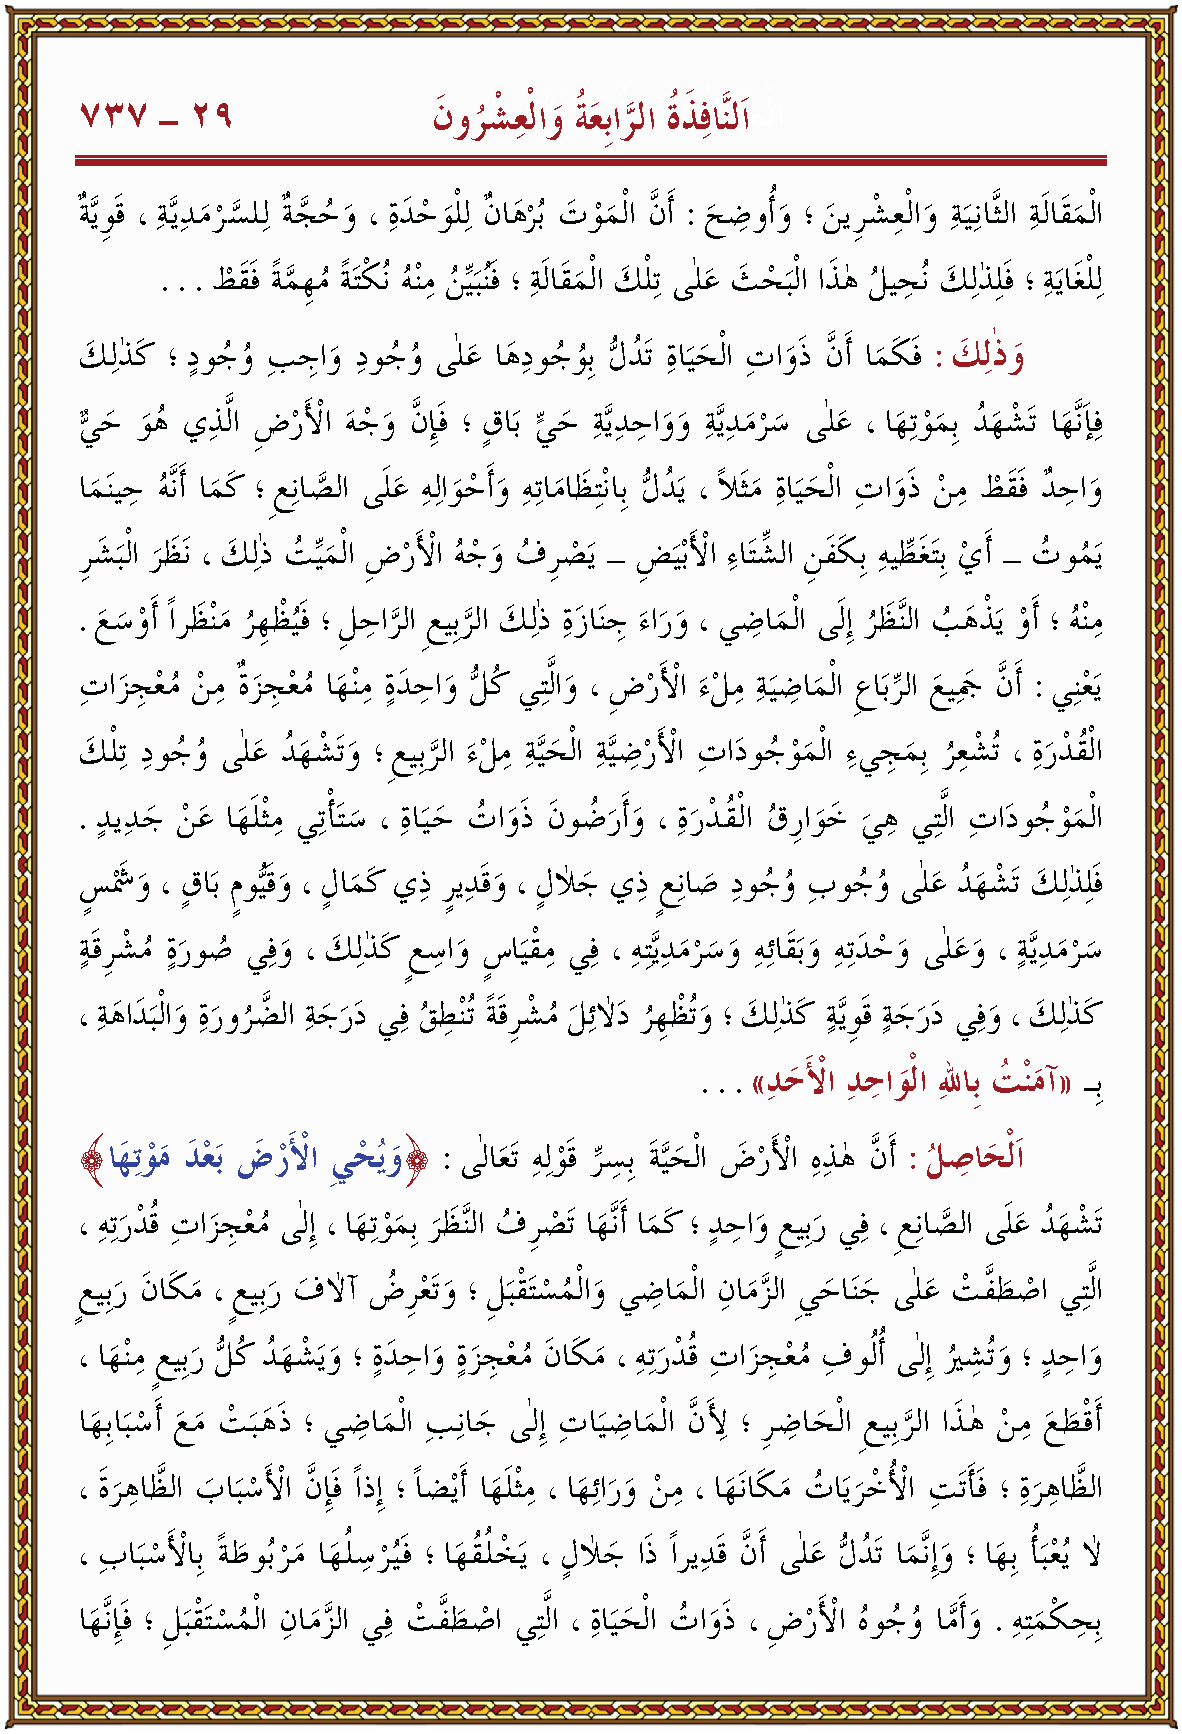 اَلنَّافِذَةُ الرَّابِعَةُ وَالْعِشْرُونَ ٢٩ ـ ٧٣٧
الْمَقَالَةِ الثَّانِيَةِ وَالْعِشْرِينَ ؛ وَأُوضِحَ : أَنَّ الْمَوْتَ بُرْهَانٌ لِلْوَحْدَةِ ، وَحُجَّةٌ لِلسَّرْمَدِيَّةِ ، قَوِيَّةٌ
لِلْغَايَةِ ؛ فَلِذٰلِكَ نُحِيلُ هٰذَا الْبَحْثَ عَلٰى تِلْكَ الْمَقَالَةِ ؛ فَنُبَيِّنُ مِنْهُ نُكْتَةً مُهِمَّةً فَقَطْ . . .
وَذٰلِكَ : فَكَمَا أَنَّ ذَوَاتِ الْحَيَاةِ تَدُلُّ بِوُجُودِهَا عَلٰى وُجُودِ وَاجِبِ وُجُودٍ ؛ كَذٰلِكَ
فِإَنَّهَا تَشْهَدُ بِمَوْتِهَا ، عَلٰى سَرْمَدِيَّةِ وَوَاحِدِيَّةِ حَيٍّ بَاقٍ ؛ فَإِنَّ وَجْهَ الْأَرْضِ الَّذِي هُوَ حَيٌّ
وَاحِدٌ فَقَطْ مِنْ ذَوَاتِ الْحَيَاةِ مَثَلاً ، يَدُلُّ بِانْتِظَامَاتِهِ وَأَحْوَالِهِ عَلَى الصَّانِعِ ؛ كَمَا أَنَّهُ حِينَمَا
يَمُوتُ ـ أَيْ بِتَغَطِّيهِ بِكَفَنِ الشِّتَاءِ الْأَبْيَضِ ـ يَصْرِفُ وَجْهُ الْأَرْضِ الْمَيِّتُ ذٰلِكَ ، نَظَرَ الْبَشَرِ
مِنْهُ ؛ أَوْ يَذْهَبُ النَّظَرُ إِلَى الْمَاضِي ، وَرَاءَ جِنَازَةِ ذٰلِكَ الرَّبِيعِ الرَّاحِلِ ؛ فَيُظْهِرُ مَنْظَراً أَوْسَعَ .
يَعْنِي : أَنَّ جَمِيعَ الرِّبَاعِ الْمَاضِيَةِ مِلْءَ الْأَرْضِ ، وَالَّتِي كُلُّ وَاحِدَةٍ مِنْهَا مُعْجِزَةٌ مِنْ مُعْجِزَاتِ
الْقُدْرَةِ ، تُشْعِرُ بِمَجِيءِ الْمَوْجُودَاتِ الْأَرْضِيَّةِ الْحَيَّةِ مِلْءَ الرَّبِيعِ ؛ وَتَشْهَدُ عَلٰى وُجُودِ تِلْكَ
الْمَوْجُودَاتِ الَّتِي هِيَ خَوَارِقُ الْقُدْرَةِ ، وَأَرَضُونَ ذَوَاتُ حَيَاةِ ، سَتَأْتِي مِثْلَهَا عَنْ جَدِيدٍ .
فَلِذٰلِكَ تَشْهَدُ عَلٰى وُجُوبِ وُجُودِ صَانِعٍ ذِي جَلاٰلٍ ، وَقَدِيرٍ ذِي كَمَالٍ ، وَقَيُّومٍ بَاقٍ ، وَشَمْسٍ
سَرْمَدِيَّةٍ ، وَعَلٰى وَحْدَتِهِ وَبَقَائِهِ وَسَرْمَدِيَّتِهِ ، فِي مِقْيَاسٍ وَاسِعٍ كَذٰلِكَ ، وَفِي صُورَةٍ مُشْرِقَةٍ
كَذٰلِكَ ، وَفِي دَرَجَةٍ قَوِيَّةٍ كَذٰلِكَ ؛ وَتُظْهِرُ دَلاٰئِلَ مُشْرِقَةً تُنْطِقُ فِي دَرَجَةِ الضَّرُورَةِ وَالْبَدَاهَةِ ،
بِـ «آمَنْتُ بِاللهِ الْوَاحِدِ الْأَحَدِ» . . .
اَلْحَاصِلُ : أَنَّ هٰذِهِ الْأَرْضَ الْحَيَّةَ بِسِرِّ قَوْلِهِ تَعَالٰى : ﴿وَيُحْيِي الْأَرْضَ بَعْدَ مَوْتِهَا﴾
تَشْهَدُ عَلَى الصَّانِعِ ، فِي رَبِيعٍ وَاحِدٍ ؛ كَمَا أَنَّهَا تَصْرِفُ النَّظَرَ بِمَوْتِهَا ، إِلٰى مُعْجِزَاتِ قُدْرَتِهِ ،
الَّتِي اصْطَفَّتْ عَلٰى جَنَاحَيِ الزَّمَانِ الْمَاضِي وَالْمُسْتَقْبَلِ ؛ وَتَعْرِضُ آلاٰفَ رَبِيعٍ ، مَكَانَ رَبِيعٍ
وَاحِدٍ ؛ وَتُشِيرُ إِلٰى أُلُوفِ مُعْجِزَاتِ قُدْرَتِهِ ، مَكَانَ مُعْجِزَةٍ وَاحِدَةٍ ؛ وَيَشْهَدُ كُلُّ رَبِيعٍ مِنْهَا ،
أَقْطَعَ مِنْ هٰذَا الرَّبِيعِ الْحَاضِرِ ؛ لِأَنَّ الْمَاضِيَاتِ إِلٰى جَانِبِ الْمَاضِي ؛ ذَهَبَتْ مَعَ أَسْبَابِهَا
الظَّاهِرَةِ ؛ فَأَتَتِ الْأُخْرَيَاتُ مَكَانَهَا ، مِنْ وَرَائِهَا ، مِثْلَهَا أَيْضاً ؛ إِذاً فَإِنَّ الْأَسْبَابَ الظَّاهِرَةَ ،
لاٰ يُعْبَأُ بِهَا ؛ وَإِنَّمَا تَدُلُّ عَلٰى أَنَّ قَدِيراً ذَا جَلاٰلٍ ، يَخْلُقُهَا ؛ فَيُرْسِلُهَا مَرْبُوطَةً بِالْأَسْبَابِ ،
بِحِكْمَتِهِ . وَأَمَّا وُجُوهُ الْأَرْضِ ، ذَوَاتُ الْحَيَاةِ ، الَّتِي اصْطَفَّتْ فِي الزَّمَانِ الْمُسْتَقْبَلِ ؛ فَإِنَّهَا